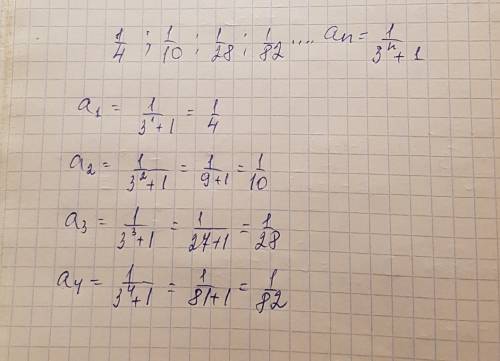 1/4 ; 1/10 ; 1/28 ; 1/82 .... aₙ = 1/(3ⁿ+1)
a₁ = 1/(3¹+1) = 1/4
a₂ = 1/(3²+1) = 1/(9+1) = 1/10
a₃ = 1/(3³+1) = 1/(27+1) = 1/28
a₄ = 1/(3⁴+1) = 1/(81+1) = 1/82